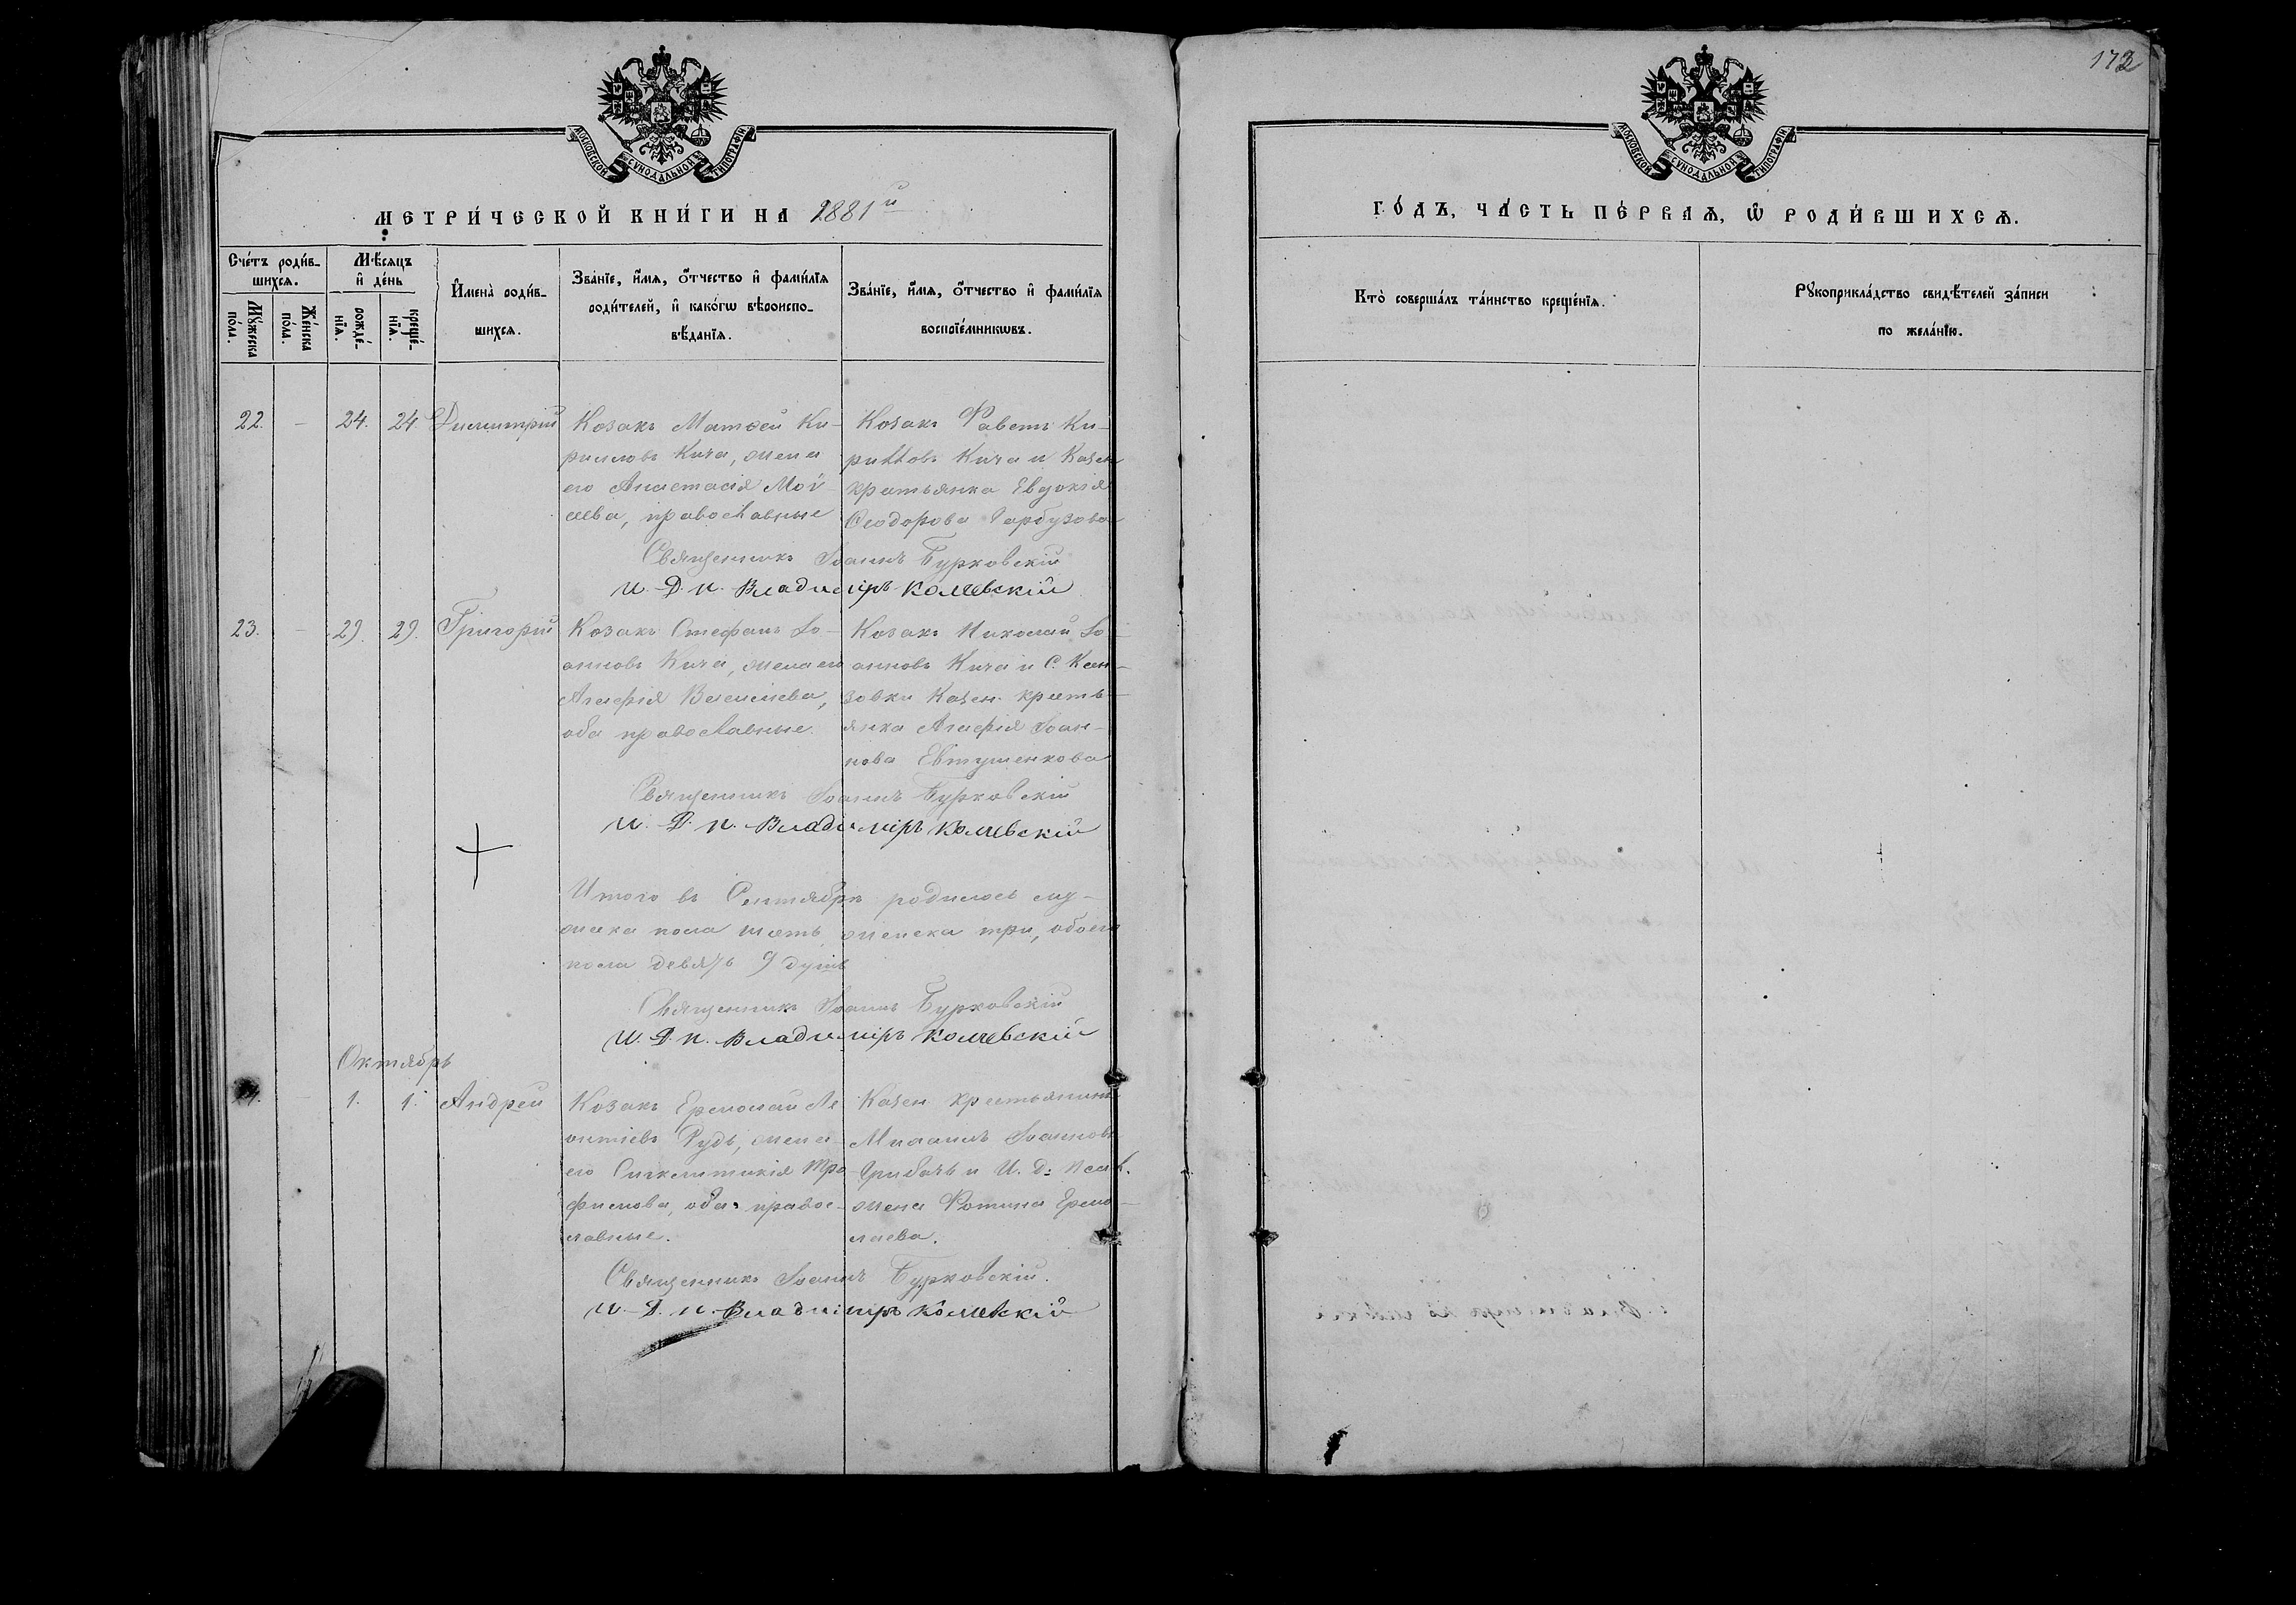 172
МОСКОВСКОЙ СѴНОДАЛЬНОЙ ТИПОГРАФІИ
МОСКОВСКОЙ СѴНОДАЛЬНОЙ ТИПОГРАФІИ
МЕТРИ́ЧЕСКОЙ КНИ́ГИ НА 1881й
ГО́ДЪ, ЧА́СТЬ ПЕ́РВАѦ, Ѡ РОДИ́ВШИХСѦ.
Сче́тъ роди́в-
шихсѧ.
Мꙋ́жеска
по́ла.
Же́нска
по́ла.
Мѣ́сѧцъ
и҆ де́нь
рожде́-
нїѧ.
креще́-
нїѧ.
И҆мена̀ роди́в-
шихсѧ.
Зва́нїе, и҆́мѧ, ѻ҆́тчество и҆ фами́лїѧ
роди́телей, и҆ како́гѡ вѣроиспо-
вѣ́данїѧ.
Зва́нїе, и҆́мѧ, ѻ҆́тчество и҆ фами́лїѧ
воспрїе́мникѡвъ.
Кто̀ соверша́лъ та́инство креще́нїѧ.
Рꙋкоприкла́дство свидѣ́телей за́писи
по жела́нїю.
22. – 24. 24 Димитрій
Козакъ Матѳей Ки-
рилловъ Кича, жена
его Анастасія Мой
сеева, православные
Козакъ Павелъ Ки-
рилловъ Кича и Казен
крестьянка Евдокія
Ѳеодорова Гарбузова
Священникъ Іоаннъ Бурковскій
И. Д. п. Владиміръ Колчевскій
23. – 29. 29. Григорій
Козакъ Стефанъ Іо-
анновъ Кича, жена его
Агафія Васильева,
оба православные.
Козакъ Николай Іо-
анновъ Кича и С. Ксен-
зовки Казен. кресть-
янка Агафія Іоан-
нова Евтушенкова
Священникъ Іоаннъ Бурковскій
И. Д. п. Владиміръ Колчевскій
Итого въ Сентябрѣ родилось му-
жеска пола шесть, женска три, обоего
пола девять 9 душъ
Священникъ Іоаннъ Бурковскій
И. Д. п. Владиміръ Колчевскій
Октябрь
24. – 1. 1. Андрей
Козакъ Ермолай Ле
онтіевъ Рудь, жена
его Синклитикія Тро
фимова, оба правос-
лавные.
Казен крестьянинъ
Михаилъ Іоанновъ
Грибачъ и И. д. псал.
жена Фотина Ермо-
лаева.
Священникъ Іоаннъ Бурковскій.
И. Д. п. Владиміръ Колчевскій